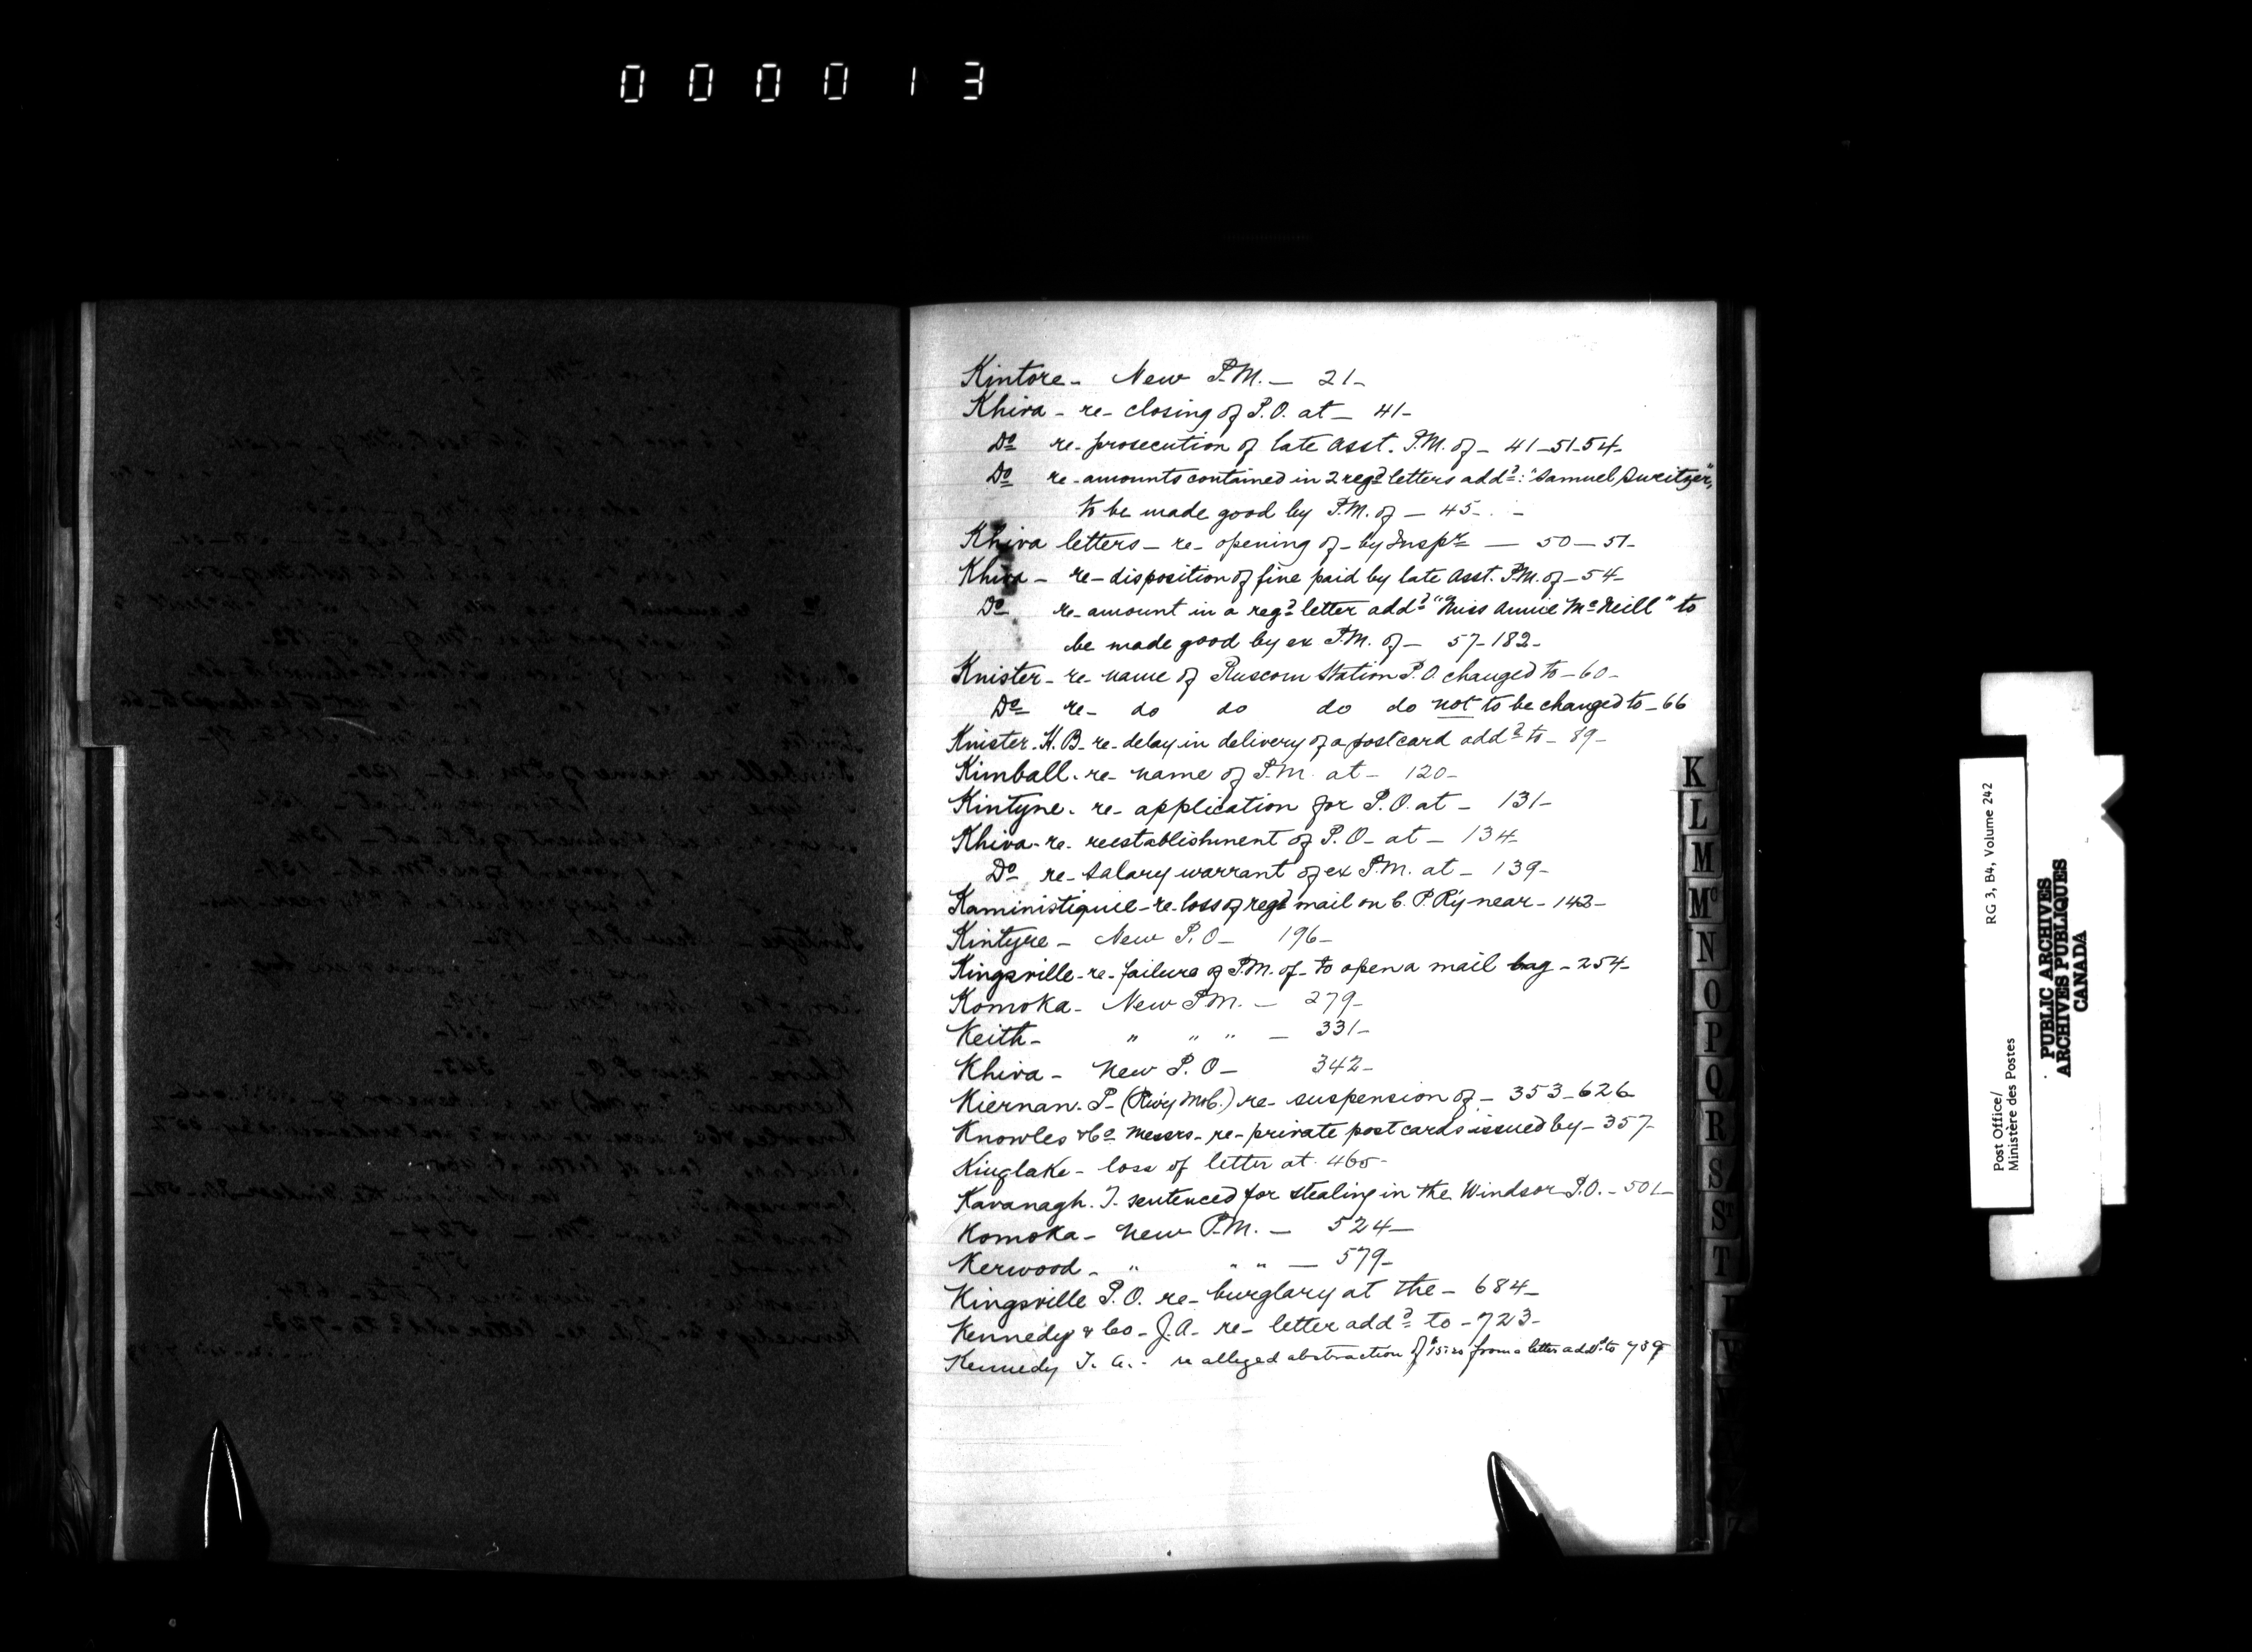 000013
Kintore - New P.M. - 21 -
Khiva - re - closing of P.O. at - 41 -
Do re - prosecution of late Asst. P.M. of - 41 - 51 - 54 -
Do re - amounts contained in 2 regd letters addd: "Samuel Sweitzer",
to be made good by P.M. of - 45 - -
Khiva letters - re - opening of - by Inspr - 50 - 51 -
Khiva - re - disposition of fine paid by late Asst. P.M. of - 54 -
Do re - amount in a regd letter addd "Miss Annie McNeill" to
be made good by ex P.M. of - 57 - 182 -
Knister - re - name of Ruscom Station P.O. changed to - 60 -
Do re - do do do do not to be changed to - 66
Knister. H.B. - re - delay in delivery of a post card addd to - 89 -
Kimball - re - name of P.M. at - 120 -
Kintyne - re - application for P.O. at - 131 -
Khiva - re - reestablishment of P.O - at - 134
Do - re - Salary warrant of ex P.M. at - 139 -
Kaministiquie - re - loss of regd mail on C.P.Ry - near - 142 -
Kintyre - New P.O - 196 -
Kingsville - re - failure of P.M. of - to open a mail bag - 254 -
Komoka - New P.M. - 279 -
Keith - " " " - 331 -
Khiva - New P.O - 342 -
Kiernan. P - (Rwy M.C.) re - suspension of - 353 - 626
Knowles & Co Messrs - re - private post cards issued by - 357 -
Kinglake - loss of letter at 465 -
Kavanagh. T. sentenced for stealing in the Windsor P.O. - 501 -
Komoka - New P.M. - 524 -
Kerwood - " " " - 579 -
Kingsville P.O. re - burglary at the - 684 -
Kennedy & Co - J.A. - re - letter addd to - 723 -
Kennedy T. A. - re alleged abstraction of from a letter addd to 739
K
L
M
Mc
N
O
P
Q
R
S
St
T
Post Office/
Ministère des Postes
RG 3, B4, Volume 242
PUBLIC ARCHIVES
ARCHIVES PUBLIQUES
CANADA